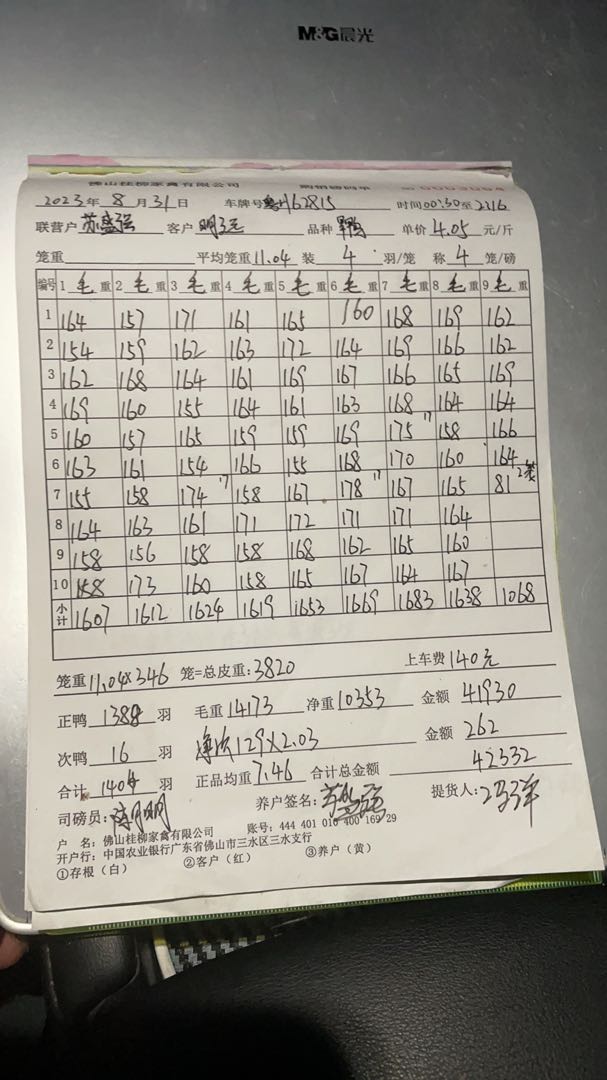 M&G晨光
佛山桂柳家禽有限公司
2023年8月31日 车牌号 62815 时间00:30至2116
联营户 苏盛强 客户 品种 鸭 单价 4.05 元/斤
笼重 平均笼重 11.04 装 4 羽/笼 称 4 笼/磅
编号 1 毛重 2 毛重 3 毛重 4 毛重 5 毛重 6 毛重 7 毛重 8 毛重 9 毛重
1 164 157 171 161 165 160 168 169 162
2 154 159 162 163 172 164 169 166 162
3 162 168 164 161 169 167 166 165 169
4 169 160 155 164 161 163 168 164 164
5 160 157 165 159 159 169 175 17 158 166
6 163 161 154 166 155 168 170 160 164
7 155 158 174 17 158 167 178 17 167 165 81 2笼
8 164 163 161 171 172 171 171 164
9 158 156 158 158 168 162 165 160
10 158 173 160 158 165 167 164 167
小计 1607 1612 1624 1619 1653 1669 1683 1638 1068
笼重 11.04×346 笼=总皮重:3820 上车费 140元
正鸭 1388 羽 毛重 14173 净重 10353 金额 41930
次鸭 16 羽 129×2.03 金额 262
合计 1404 羽 正品均重 7.46 合计总金额 42332
司磅员: 养户签名: 苏盛强 提货人:
户 名: 佛山桂柳家禽有限公司 账号: 444 401 010 400 169 29
开户行: 中国农业银行广东省佛山市三水区三水支行
①存根(白) ②客户(红) ③养户(黄)